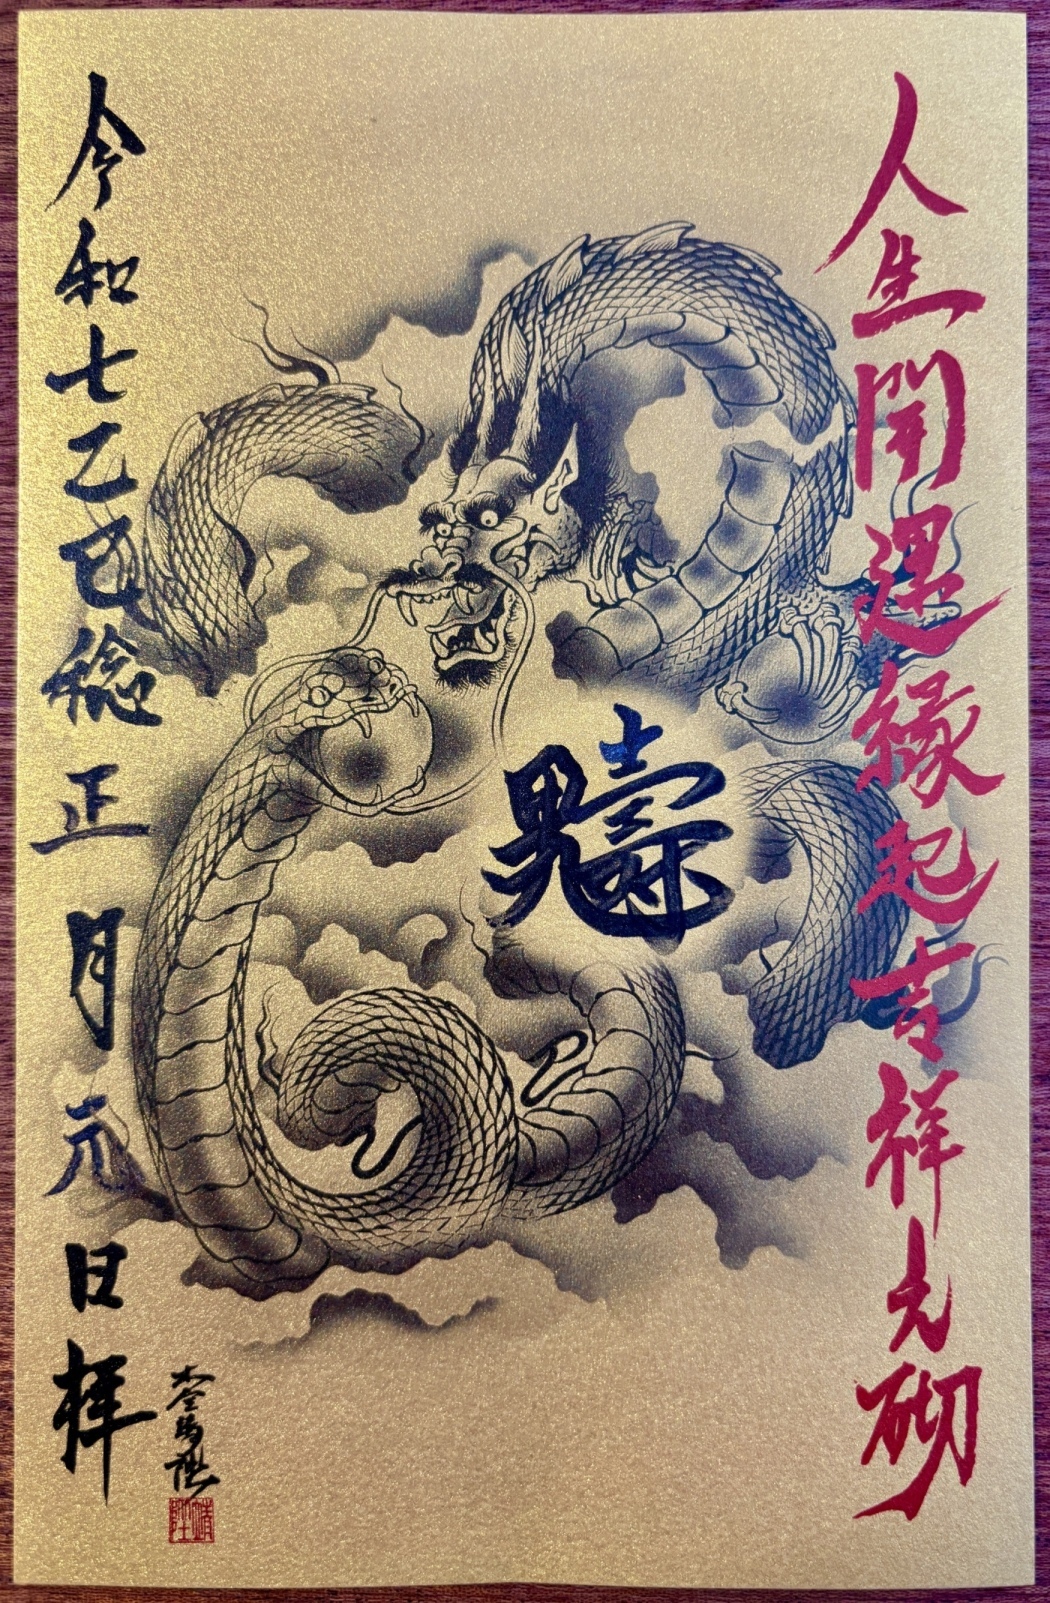 人生開運縁起吉祥之砌
令和七乙巳稔正月元日拝